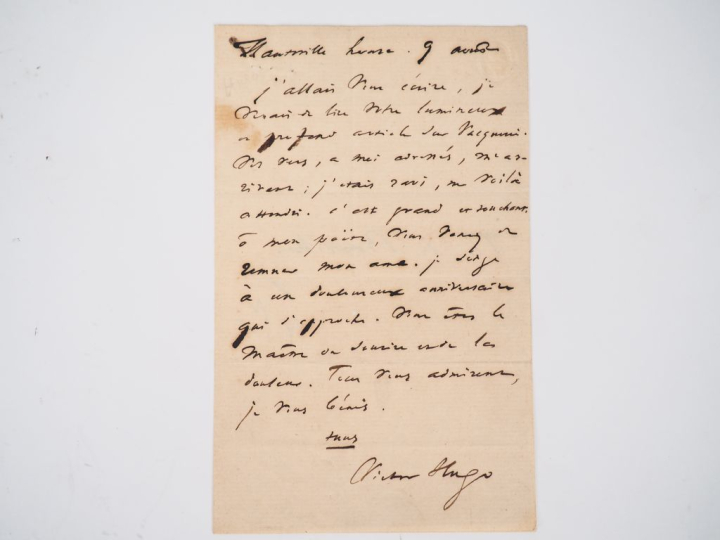 Hauteville house. 9 août
j'allais vous écrire, je
venais de lire votre lumineux
et profond article sur Vacquerie.
Vos vers, à moi adressés, m'ar-
rivent ; j'étais ravi, me voilà
attendri. c'est grand et touchant.
ô mon poëte, vous venez de
remuer mon âme. je songe
à un douloureux anniversaire
qui s'approche. Vous êtes le
maître du sourire et de la
douleur. Tous vous admirent,
je vous bénis.
tuus
Victor Hugo